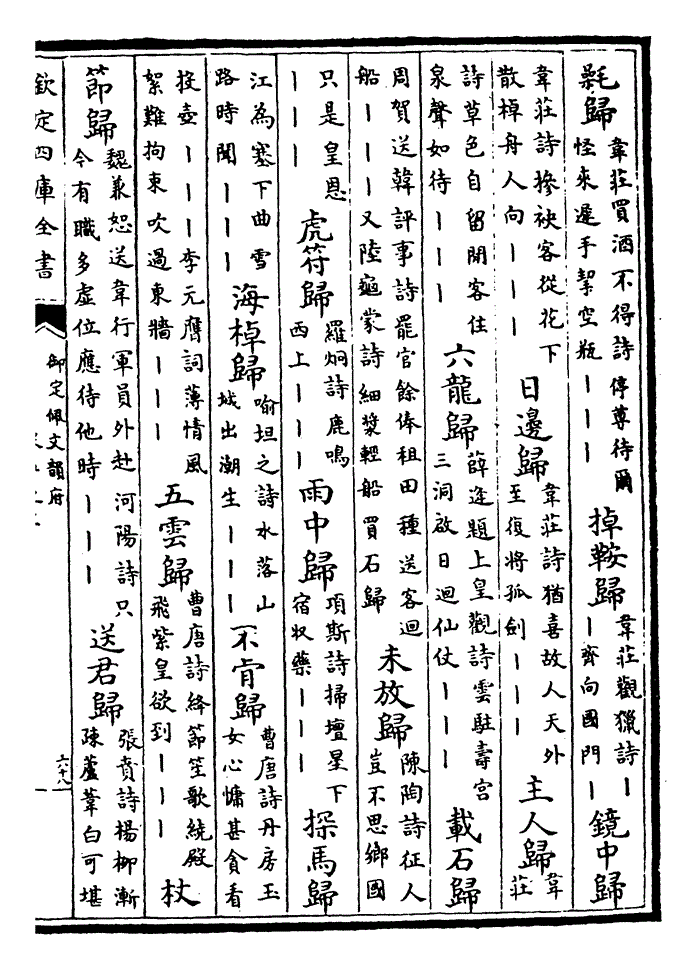 歸
韋莊買酒不得詩停尊待爾
怪來遲手挈空瓶｜｜｜
掉鞍歸
韋莊觀獵詩｜
｜齊向國門｜
鏡中歸
韋莊詩摻袂客從花下
散棹舟人向｜｜｜
日邊歸
韋莊詩猶喜故人天外
至復將孤劍｜｜｜
主人歸
韋
莊
詩草色自留閒客住
泉聲如待｜｜｜
六龍歸
薛逢題上皇觀詩雲駐壽宮
三洞啟日迴仙仗｜｜｜
載石歸
周賀送韓評事詩罷官餘俸租田種送客迴
船｜｜｜又陸龜蒙詩細漿輕船買石歸
未放歸
陳陶詩征人
豈不思鄉國
只是皇恩
｜｜｜
虎符歸
羅炯詩鹿鳴
西上｜｜｜
雨中歸
項斯詩掃壇星下
宿收藥｜｜｜
探馬歸
江為塞下曲雪
路時聞｜｜｜
海棹歸
喻坦之詩水落山
城出潮生｜｜｜
不肯歸
曹唐詩丹房玉
女心慵甚貪看
投壺｜｜｜李元膺詞薄情風
絮難拘束吹過東牆｜｜｜
五雲歸
曹唐詩絳節笙歌繞殿
飛紫皇欲到｜｜｜
杖
節歸
魏兼恕送韋行軍員外赴河陽詩只
今有職多虛位應待他時｜｜｜
送君歸
張賁詩楊柳漸
疎蘆葦白可堪
欽定四庫全書
御定佩文韻府
六十八